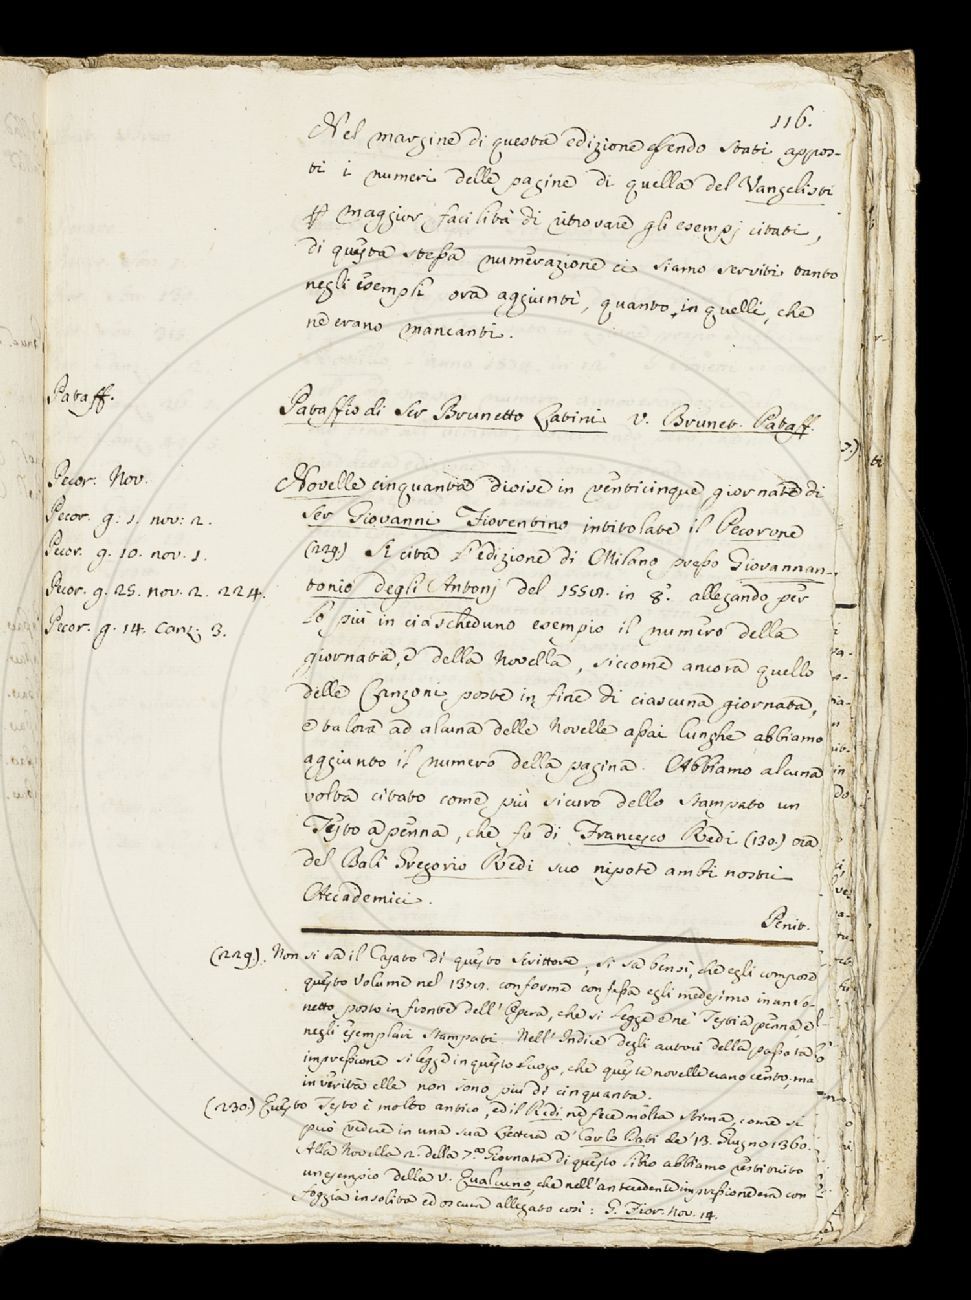 116.
Nel margine di questa edizione essendo stati appos-
ti i numeri delle pagine di quella del Vangelisti
p maggior facilità di ritrovare gli esempj citati,
di questa stessa numerazione ci siamo serviti tanto
negli esempli ora aggiunti, quanto in quelli, che
ne erano mancanti.
Pataff.
Pataffio di Ser Brunetto Latini v. Brunet. Pataff.
Pecor. Nov.
Pecor. g. 1. nov. 2.
Pecor. g. 10. nov. 1.
Pecor. g. 25. nov. 2. 224.
Pecor. g. 14. Canz. 3.
Novelle cinquanta divise in venticinque giornate di
Ser Giovanni Fiorentino intitolate il Pecorone
(229) Si cita l'edizione di Milano presso Giovannan-
tonio degli Antonj del 1558. in 8.º allegando per
lo più in ciascheduno esempio il numero della
giornata, e della Novella, siccome ancora quello
delle Canzoni poste in fine di ciascuna giornata,
e talora ad alcuna delle Novelle assai lunghe abbiamo
aggiunto il numero della pagina. Abbiamo alcuna
volta citato come più sicuro dello stampato un
Testo a penna, che fu di Francesco Redi (130.) ora
del Balì Gregorio Redi suo nipote ambi nostri
Accademici.
Penit.
(229). Non si sa il Casato di questo Scrittore, si sa bensì, che egli compose
questo Volume nel 1378. conforme confessa egli medesimo in un So-
netto posto in fronte dell'Opera, che si legge e ne' Testi a penna, e
negli esemplari stampati. Nell'Indice degli autori della passata
impressione si legge in questo luogo, che queste novelle erano cento, ma
in verità elle non sono più di cinquanta.
(230.) Questo Testo è molto antico, ed il Redi ne fece molta stima, come si
può vedere in una sua Lettera a Carlo Dati de' 13. Giugno 1360.
Alla Novella 2. della 7.ma Giornata di questo libro abbiamo restituito
un esempio della v. Qualcuno, che nell'antecedente impressione era con
foggia insolita ed oscura allegato così: G. Fior. Nov. 14.